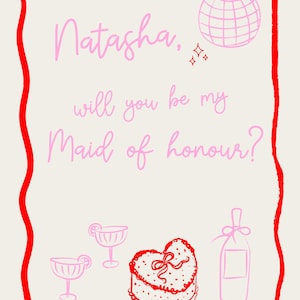 Natasha,
will you be my
Maid of honour?